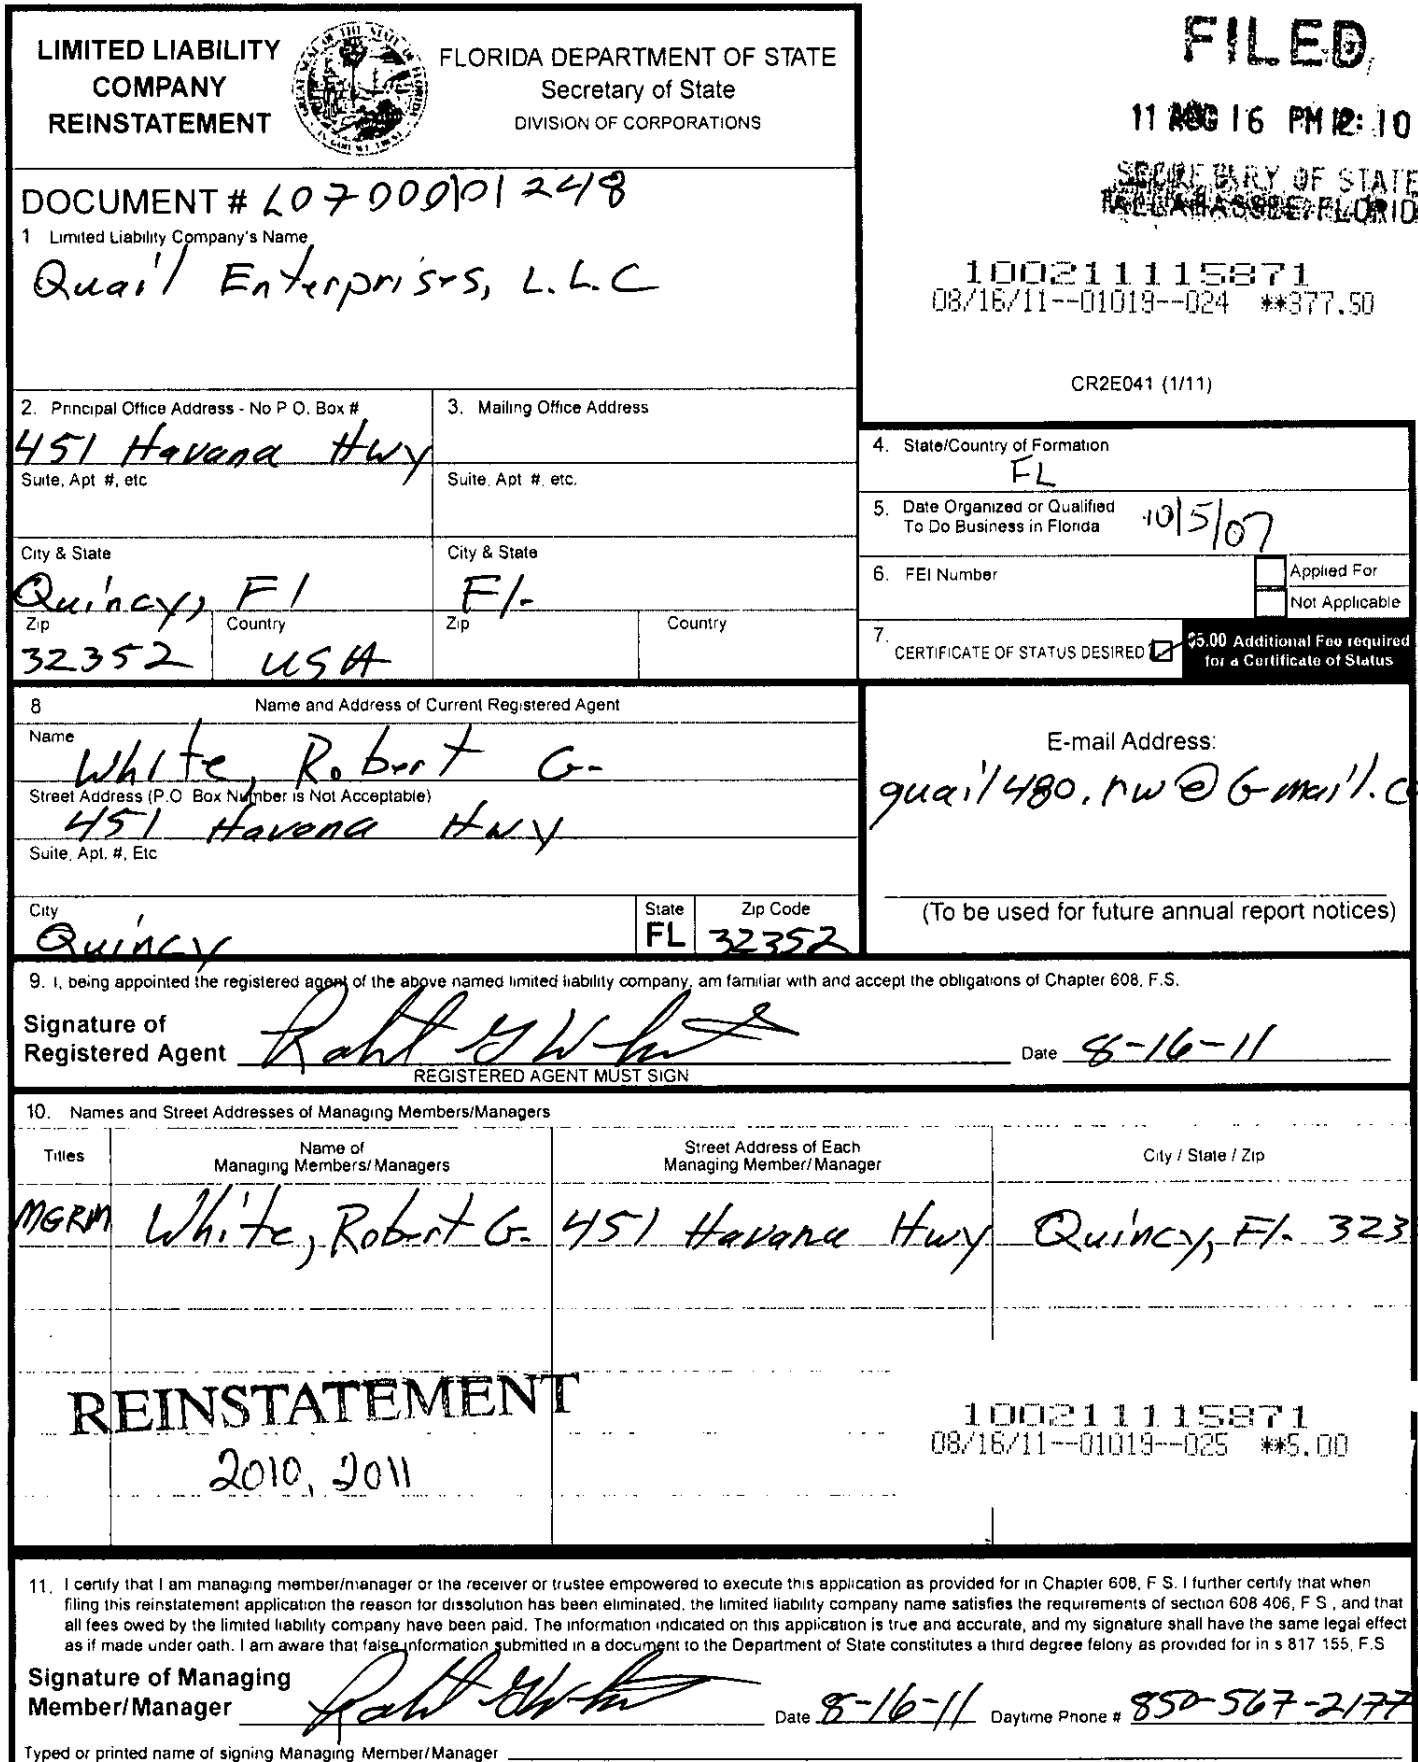 LIMITED LIABILITY
COMPANY
REINSTATEMENT
FLORIDA DEPARTMENT OF STATE
Secretary of State
DIVISION OF CORPORATIONS
FILED
11 AUG 16 PM 12:10
SECRETARY OF STATE
TALLAHASSEE, FLORID
DOCUMENT # L07000101248
1 Limited Liability Company's Name
Quail Enterprises, L.L.C
100211115871
08/16/11--01019--024 **377.50
CR2E041 (1/11)
2. Principal Office Address - No P O. Box #
451 Havana Hwy
Suite, Apt #, etc
City & State
Quincy, Fl
Zip
32352
Country
USA
3. Mailing Office Address
Suite, Apt #, etc.
City & State
Fl.
Zip
Country
4. State/Country of Formation
FL
5. Date Organized or Qualified
To Do Business in Florida
10/5/07
6. FEI Number
Applied For
Not Applicable
7. CERTIFICATE OF STATUS DESIRED
$5.00 Additional Fee required
for a Certificate of Status
8 Name and Address of Current Registered Agent
Name
White, Robert G.
Street Address (P.O Box Number is Not Acceptable)
451 Havana Hwy
Suite, Apt. #, Etc
City
Quincy
State
FL
Zip Code
32352
E-mail Address:
quail480.rw@Gmail.c
(To be used for future annual report notices)
9. I, being appointed the registered agent of the above named limited liability company, am familiar with and accept the obligations of Chapter 608, F.S.
Signature of
Registered Agent
Date 8-16-11
REGISTERED AGENT MUST SIGN
10. Names and Street Addresses of Managing Members/Managers
Titles
Name of
Managing Members/Managers
Street Address of Each
Managing Member/Manager
City / State / Zip
MGRM White, Robert G. 451 Havana Hwy Quincy, Fl. 323
REINSTATEMENT
2010, 2011
100211115871
08/16/11--01019--025 **5.00
11. I certify that I am managing member/manager or the receiver or trustee empowered to execute this application as provided for in Chapter 608, F S. I further certify that when
filing this reinstatement application the reason for dissolution has been eliminated, the limited liability company name satisfies the requirements of section 608 406, F S , and that
all fees owed by the limited liability company have been paid. The information indicated on this application is true and accurate, and my signature shall have the same legal effect
as if made under oath. I am aware that false information submitted in a document to the Department of State constitutes a third degree felony as provided for in s 817 155, F.S
Signature of Managing
Member/Manager
Date 8-16-11 Daytime Phone # 850-567-2177
Typed or printed name of signing Managing Member/Manager